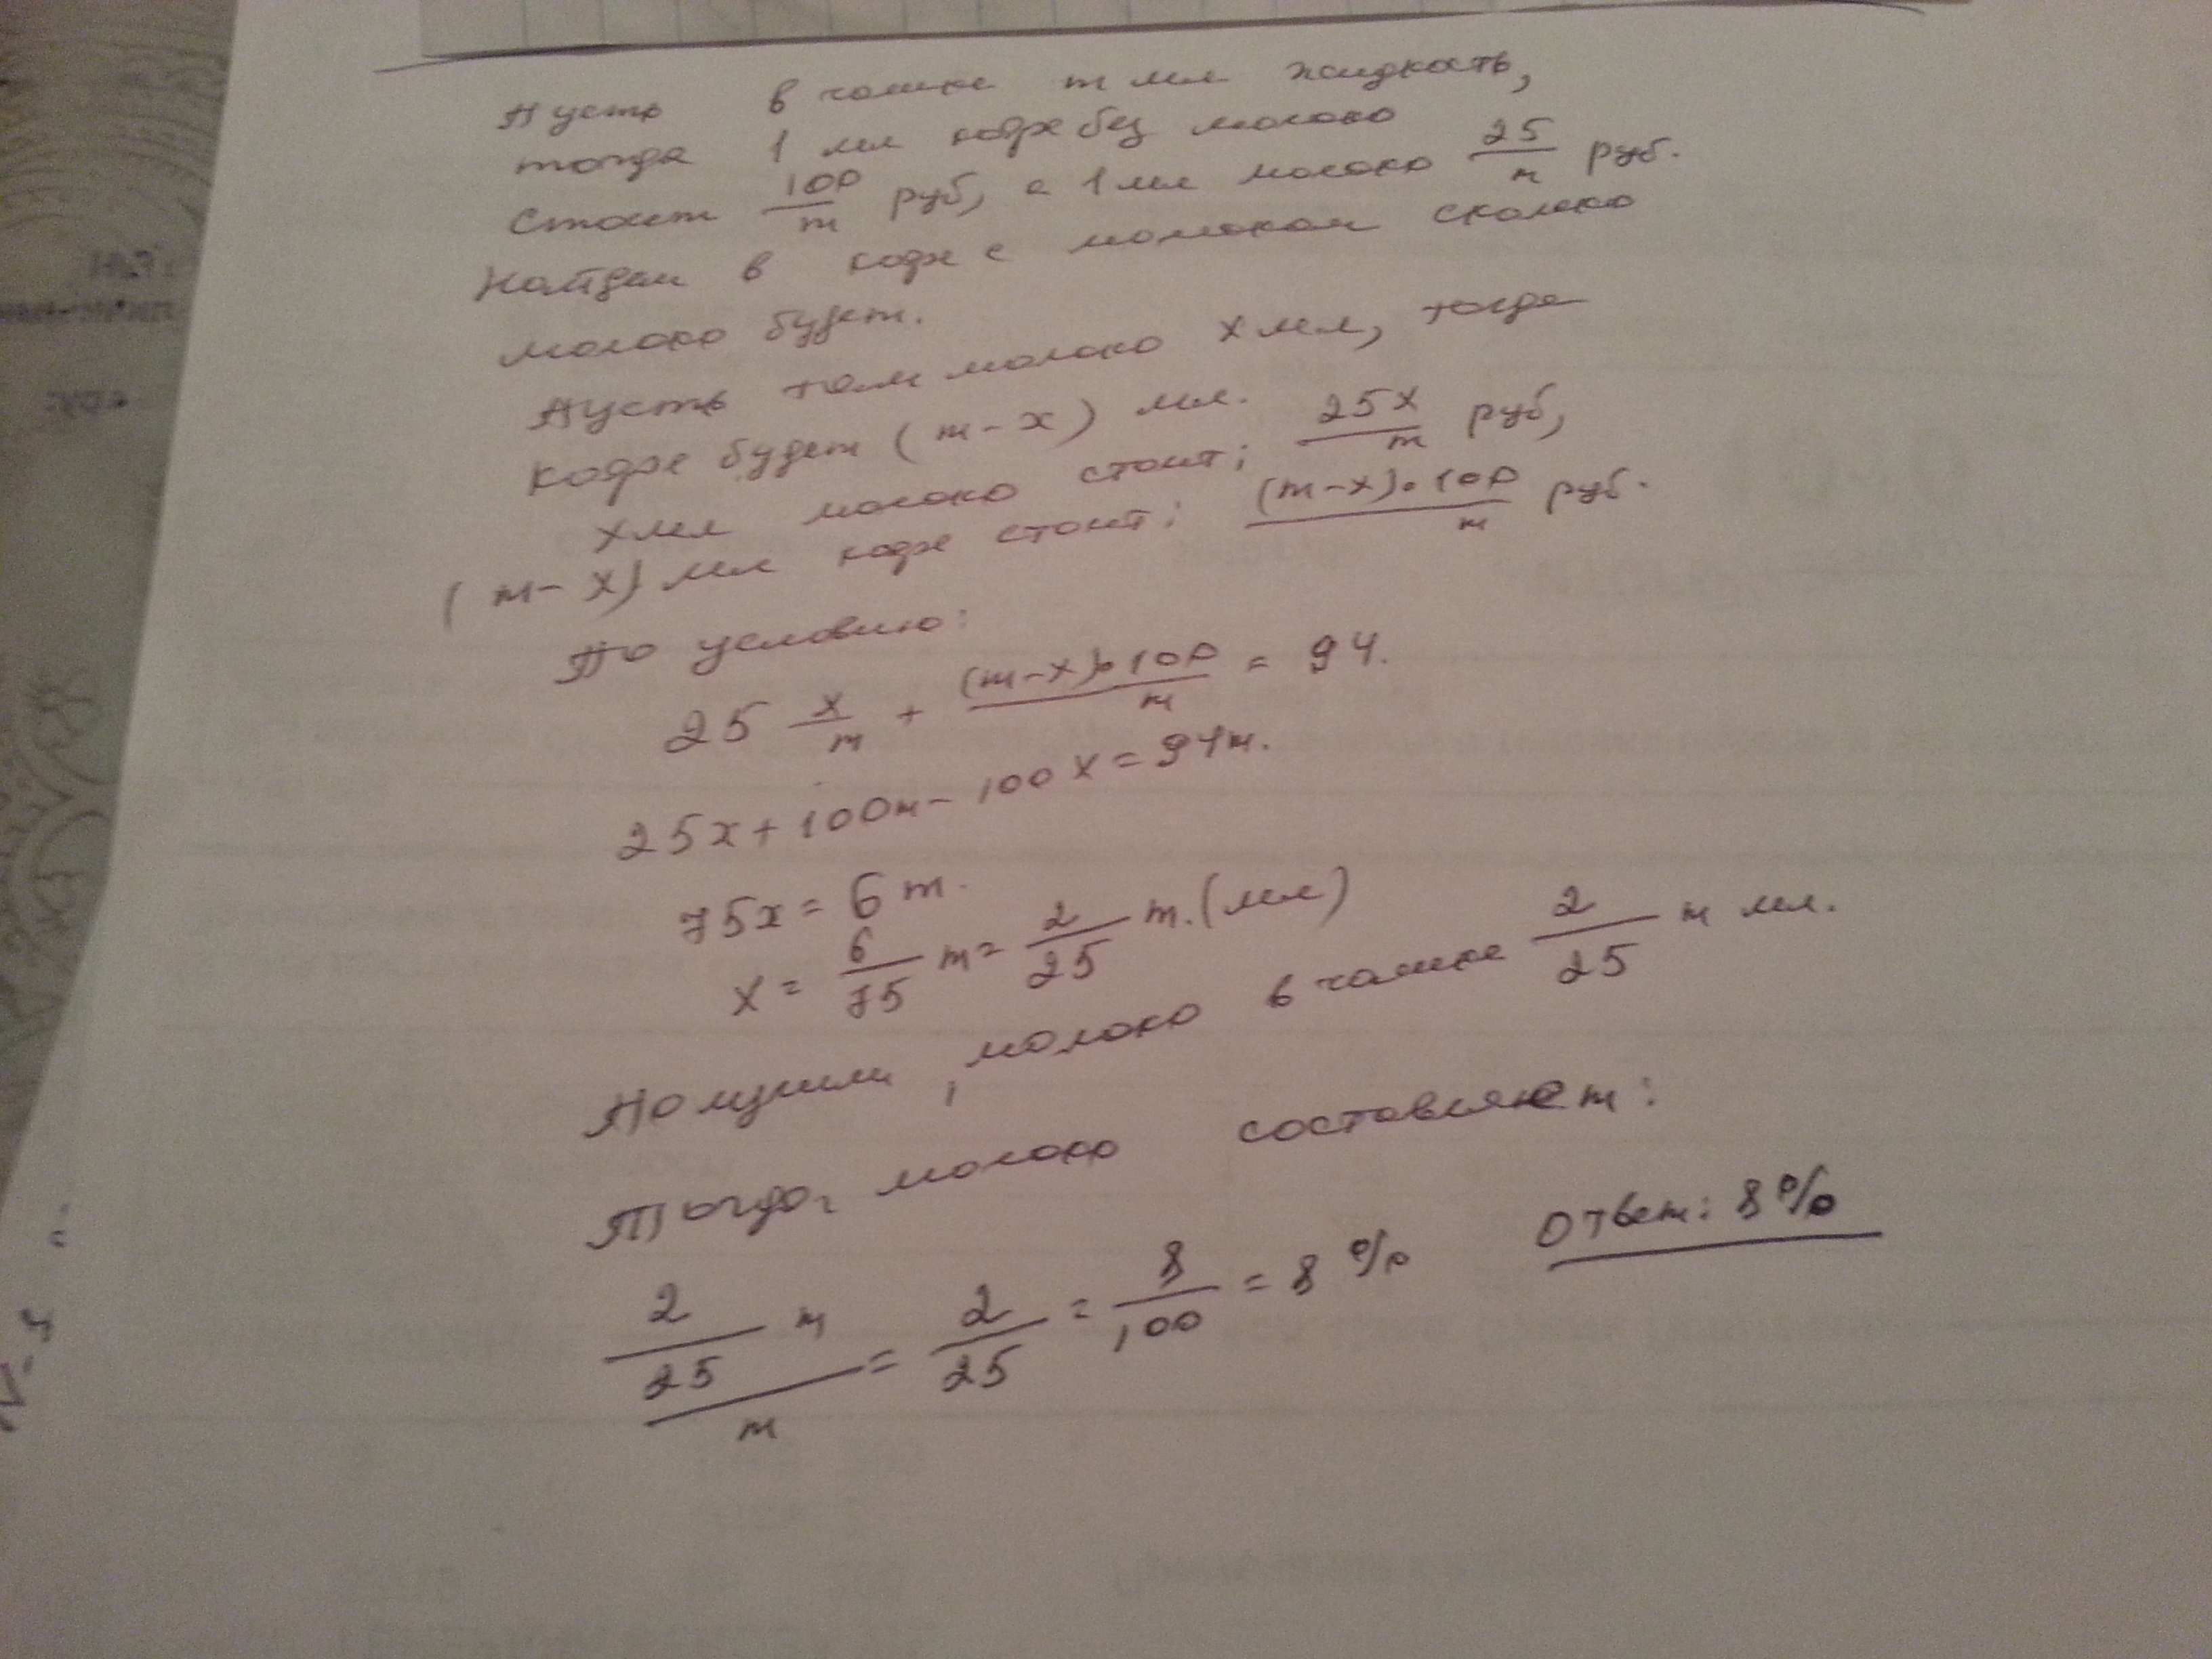 Пусть в чашке m мл жидкость,
тогда 1 мл кофе без молоко
стоит 100/m руб, а 1 мл молоко 25/m руб.
Найдем в кофе с молоком сколько
молоко будет.
Пусть там молоко x мл, тогда
кофе будет (m-x) мл.
x мл молоко стоит: 25x/m руб,
(m-x) мл кофе стоит: (m-x)·100/m руб.
По условию:
25 x/m + (m-x)·100/m = 94.
25x+100m-100x=94m.
75x=6m.
x = 6/75 m = 2/25 m. (мл)
Получили, молоко в чашке 2/25 m мл.
Тогда, молоко составляет:
2/25 m / m = 2/25 = 8/100 = 8%
Ответ: 8%